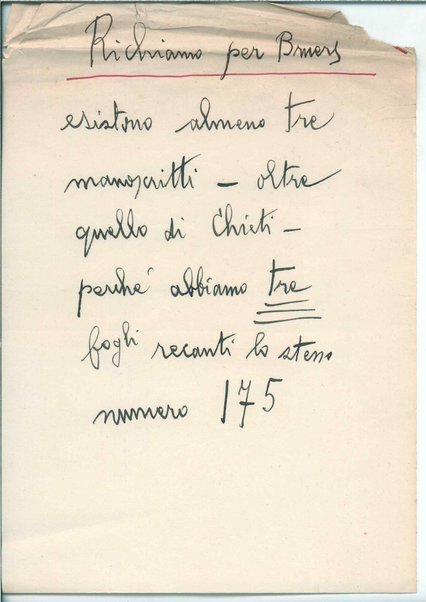 Richiamo per Bruers
esistono almeno tre
manoscritti – oltre
quello di Chieti –
perché abbiamo tre
fogli recanti lo stesso
numero 175